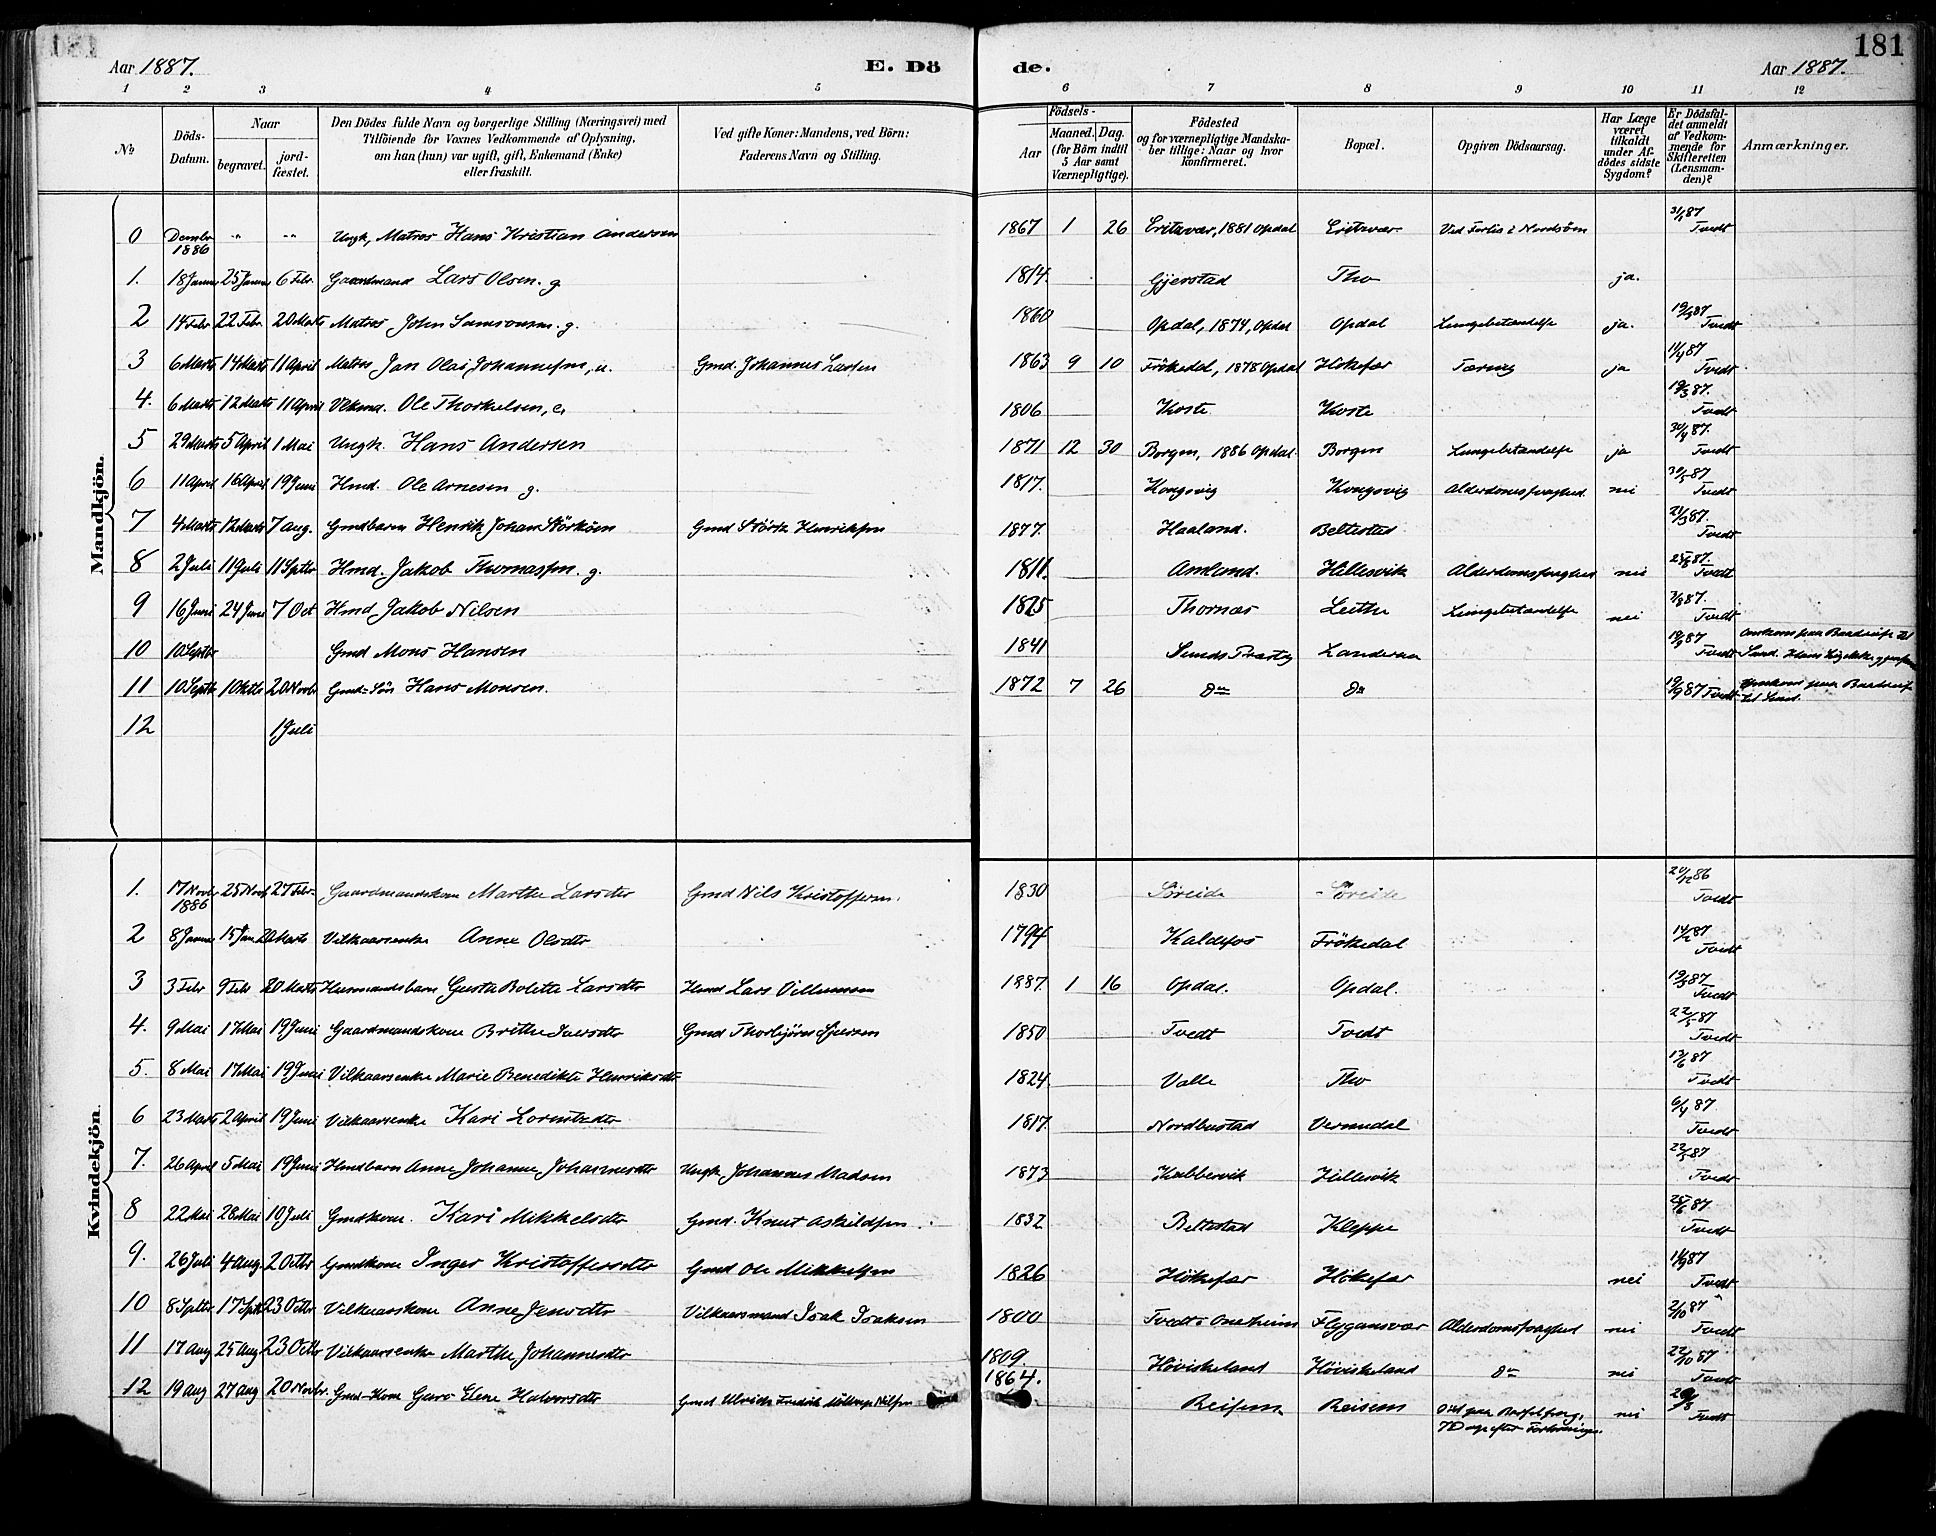 181
Aar 1887. E. Dö de. Aar 1887.
1 2 3 4 5 6 7 8 9 10 11 12
No Döds-Datum. Naar begravet. jordfæstet. Den Dödes fulde Navn og borgerlige Stilling (Næringsvei) med Tilföiende for Voxnes Vedkommende af Oplysning, om han (hun) var ugift, gift, Enkemand (Enke) eller fraskilt. Ved gifte Koner: Mandens, ved Börn: Faderens Navn og Stilling. Födsels- Aar Maaned. Dag. (for Börn indtil 5 Aar samt Værnepligtige). Födested og for værnepligtige Mandskaber tillige: Naar og hvor konfirmeret. Bopæl. Opgiven Dödsaarsag. Har Læge været tilkaldt under Afdödes sidste Sygdom? Er Dödsfaldet anmeldt af Vedkommende for Skifteretten (Lensmanden)? Anmærkninger.
Mandkjön.
0 Decmbr 1886 " " Ungk, Matros Hans Kristian Andersen 1867 1 26 Eritsvær, 1881 Opdal Eritsvær Ved Forlis i Nordsöen 31/1 87 Tvedt
1. 18 Janua 25 Janua 6 Febr. Gaardmand Lars Olsen. g 1814. Gjerstad Tho ja.
2 14 Febr 22 Febr. 20 Marts Matros John Samsonsen. g. 1860 Opdal, 1874, Opdal Opdal Lungebetændelse ja. 19/3 87 Tvedt
3 6 Marts 14 Marts 11 April Matros Jan Olai Johannessen, u. Gmd. Johannes Larsen 1863 9 10 Frökedal, 1878 Opdal Hökefær Tæring ja 11/4 87 Tvedt.
4. 6 Marts 12 Marts 11 April Vlkmd. Ole Thorkelsen, e. 1806 Koste Koste 19/3 87. Tvedt
5 29 Marts 5 April 1 Mai Ungk. Hans Andersen 1871 12 30 Borgen, 1886 Opdal. Borgen Lungebetændelse ja 30/4 87. Tvedt
6 11 April 16 April 19 Juni Hmd. Ole Arnesen g. 1817. Kongsvig Kongsvig Alderdomssvaghed. nei 30/5 87 Tvedt
7 4 Marts 12 Marts 7 Aug. Gmdbarn Henrik Johan Störksen Gmd Störk Henriksen 1877. Haaland. Beltestad 21/3 87. Tvedt
8 2 Juli 11 Juli 11 Septbr Hmd. Jakob Thomassen. g. 1811. Amland. Hillesvik Alderdomssvaghed nei Tvedt
9 16 Juni 24 Juni 7 Oct Hmd Jakob Nilsen 1825 Thornæs Leithe Lungebetændelse nei 3/8 87. Tvedt
10 10 Septbr Gmd Mons Hansen 1841 Sunds Præstg Landeraa 19/9 87 Tvedt Omkom paa Baadreise til Sund. Hans Lig ikke gjenf
11 10 Septb 1 Oktb 20 Novbr Gmd-Sön Hans Monsen. 1872 7 26 Do Do 19/9 87 Tvedt Omkom paa Baadreise til Sund.
12 1 Juli
Kvindekjön.
1. 17 Novbr 1886 25 Novb 27 Febr. Gaardmandskone Marthe Larsdtr Gmd Nils Kristoffersen. 1830 Söreide Söreide 20/12 86 Tvedt
2 8 Janua 15 Jan 20 Marts Vilkaarsenke Anne Olsdtr 1794 Kaldefos Frökedal 14/2 87 Tvedt
3 3 Febr 9 Febr 20 Marts Husmandsbarn Gurta Bolette Larsdtr Hmd Lars Villumsen 1887. 1 16 Opdal. Opdal. 19/3 87. Tvedt
4. 9 Mai 17 Mai 19 Juni Gaardmandskone Brithe Iversdtr Gmd Thorbjörn Sjursen 1850 Tvedt Tvedt 22/5 87 Tvedt
5. 8 Mai 17 Mai 19 Juni Vilkaarsenke Marie Benedikte Henriksdtr 1824. Valle Tho 13/6 87 Tvedt
6 23 Marts 2 April 19 Juni Vilkaarsenke Kari Lorentzdtr 1817. Nordbustad Vernedal 6/4 87 Tvedt
7. 26 April 5 Mai 19 Juni Hmdbarn Anne Johanne Johannesdtr Ungk. Johannes Madsen 1873 Kubbervik Hillesvik 22/5 87 Tvedt
8 22 Mai 28 Mai 10 Juli Gmdkone. Kari Mikkelsdtr Gmd. Knut Askildsen 1832 Beltestad Kleppe 25/6 87. Tvedt
9. 26 Juli 4 Aug. 2 Octbr Gmdkone Inger Kristoffersdtr Gmd Ole Mikkelsen 1826 Hökefær Hökefær nei Tvedt
10 8 Septbr 17 Sptb 23 Octbr Vilkaarskone Anne Jensdtr Vilkaarsmand Isak Isaksen 1800 Tvedt i Onæheim Flygansvær Alderdomssvaghed nei 2/10 87 Tvedt
11 17 Aug 25 Aug 23 Octbr Vilkaarsenke Marthe Johannesdtr 1809. Höviskeland Höviskeland Do nei 22/10 87 Tvedt
12 19 Aug 27 Aug 20 Novbr. Gmd-Kone Guro Elene Halvorsdtr Gmd Ulrich Fredrik Möllerup Nilsen 1864. Reisem Reisem Död paa Barselseng, 7 Dage efter Forlösningen. nei Tvedt